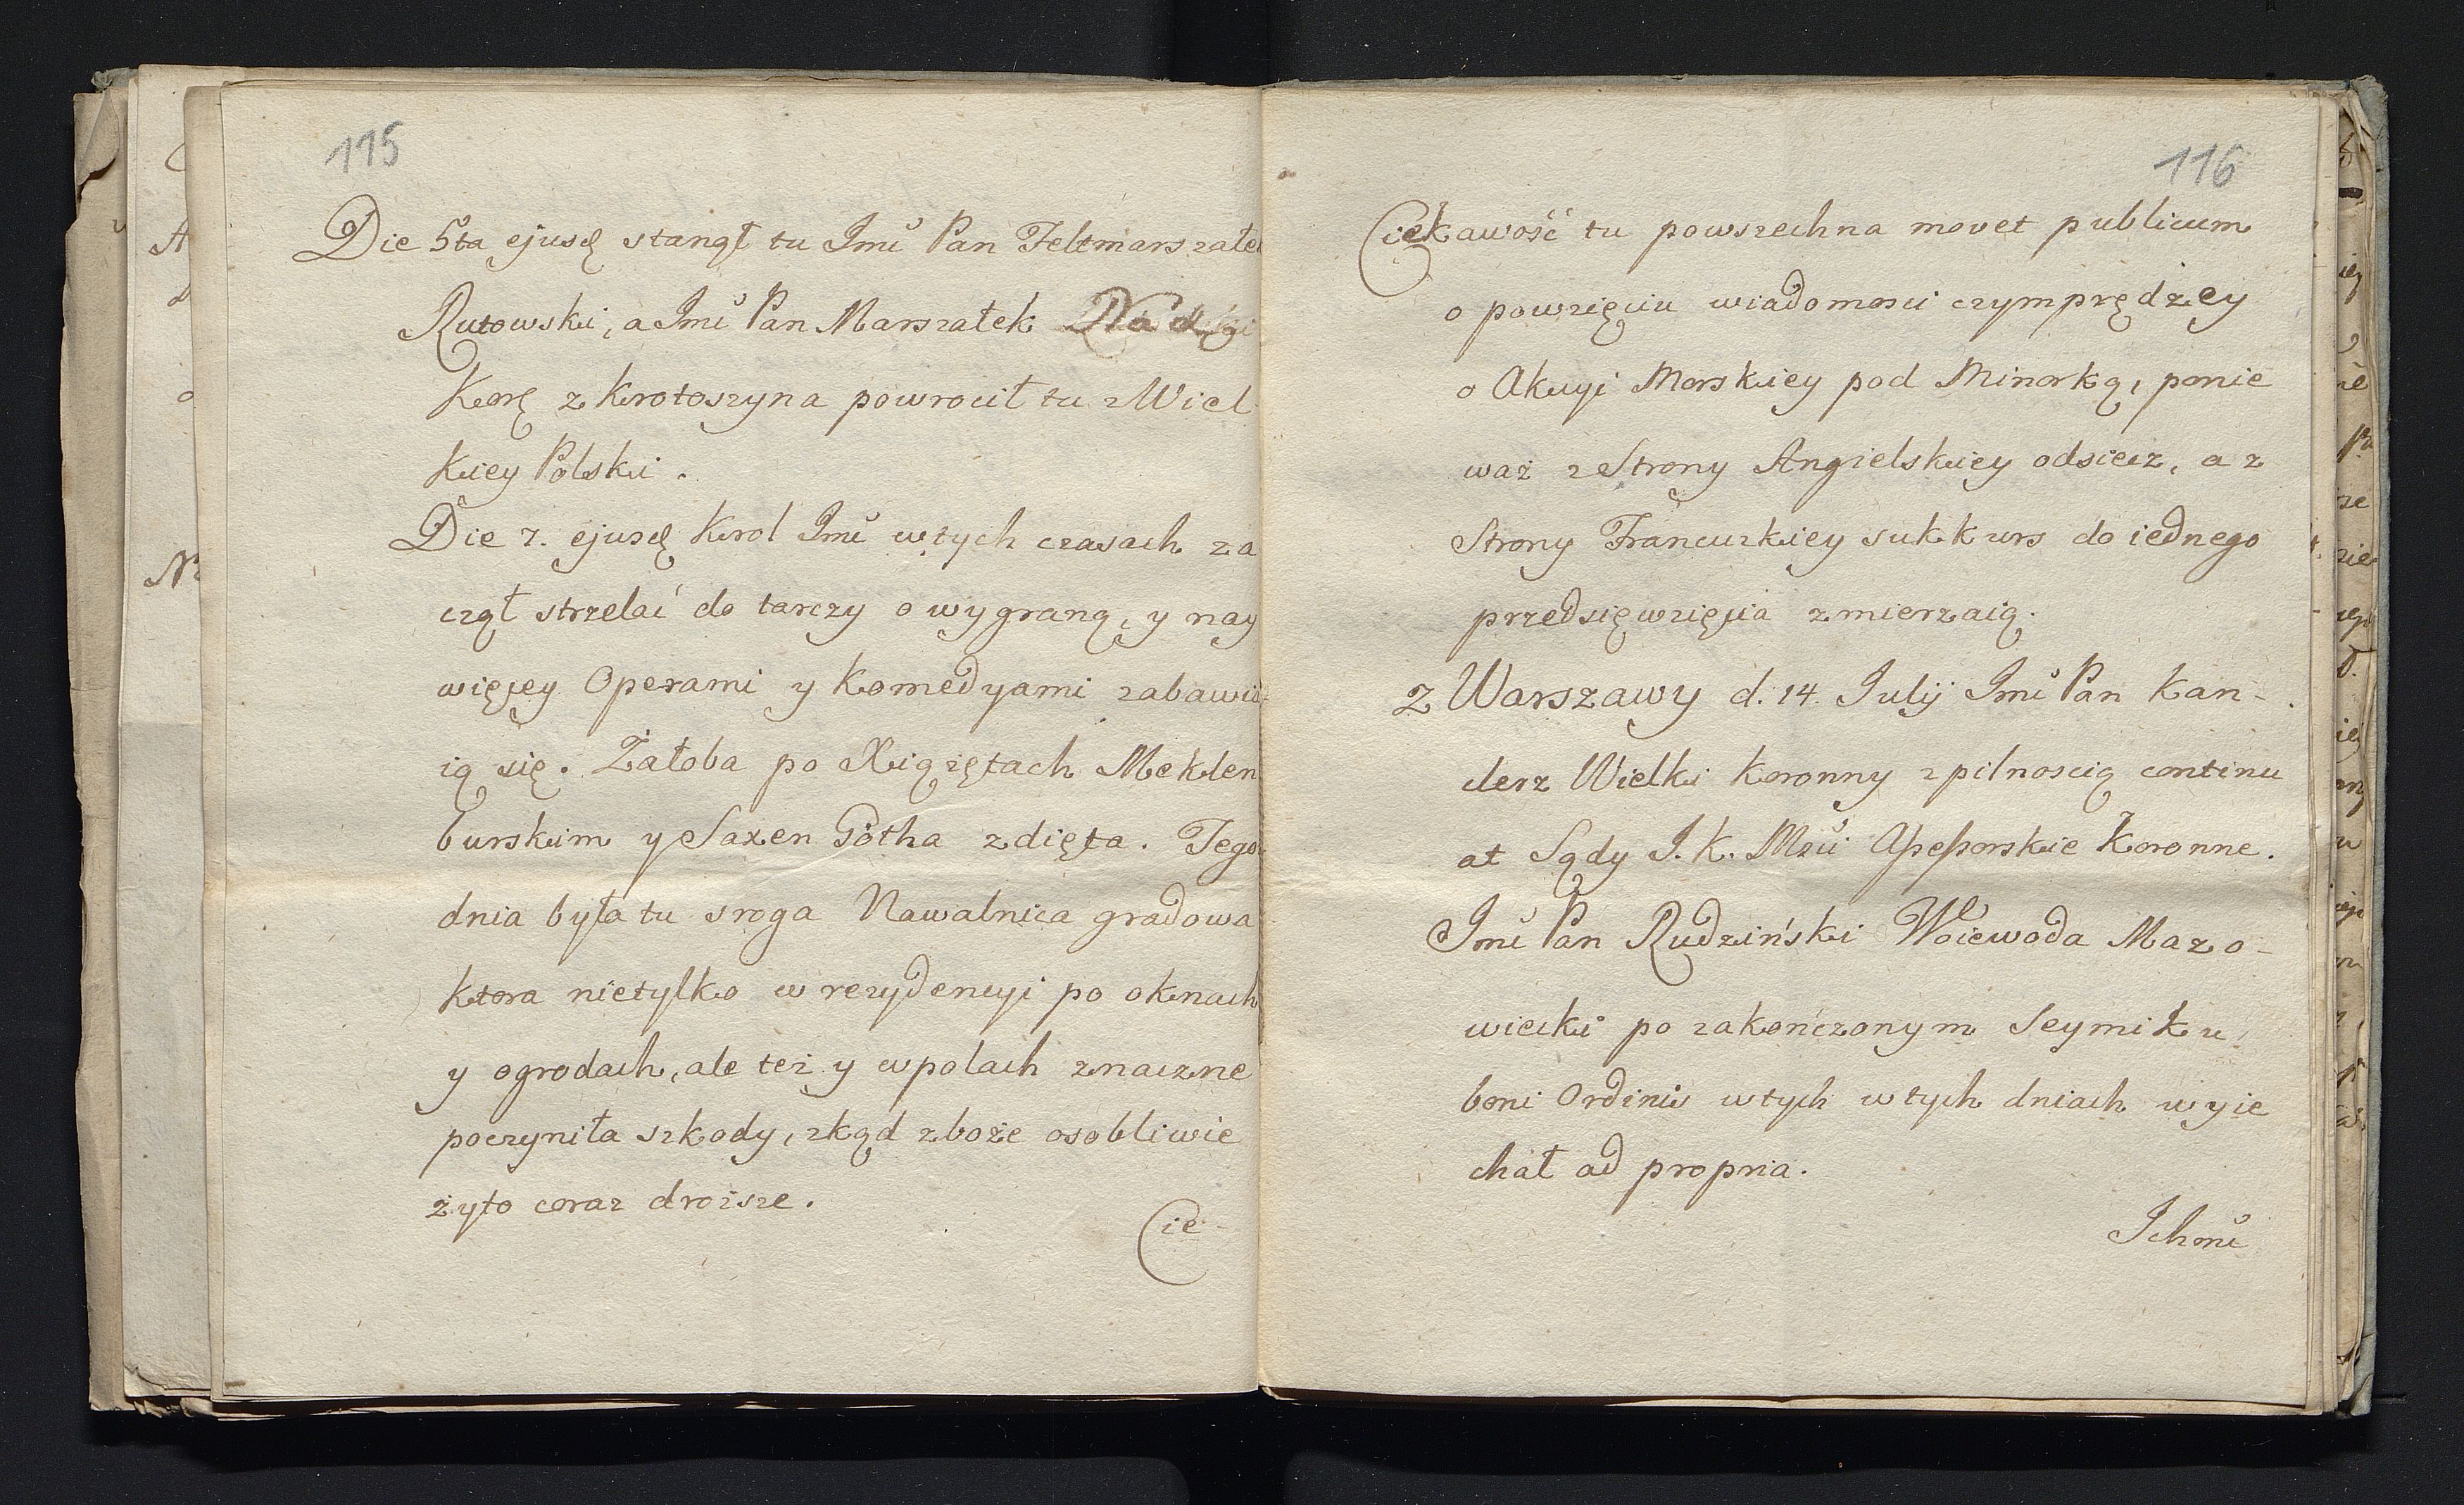 115
Die 5ta ejusđ stanął tu Jmć Pan Feltmarszałek
Rutowski, a Jmć Pan Marszałek
Korę z Krotoszyna powrocił tu z Wiel
kiey Polski.
Die 7. ejusđ Krol Jmć w tych czasach za
czął strzelać do tarczy o wygraną, y nay
więcey Operami y Komedyami zabawia
ią się. Żałoba po Xiążętach Meklen
burskim y Saxen Gotha zdięta. Tego
dnia była tu sroga Nawalnica gradowa
ktora nietylko w rezydencyi po oknach
y ogrodach, ale też y w polach znaczne
poczyniła szkody, zkąd zboże osobliwie
żyto coraz droższe.
Cie-
116
Ciekawość tu powszechna movet publicum
o powzięciu wiadomosci czymprędzey
o Akcyi Morskiey pod Minorką, ponie
waż z Strony Angielskiey odsiecz, a z
Strony Francuzkiey sukkurs do iednego
przedsięwzięcia zmierzaią.
Z Warszawy d. 14. Julij Jmć Pan Kan-
clerz Wielki Koronny z pilnoscią continu
at Sądy J. K. Mći Assessorskie Koronne.
Jmć Pan Rudziński Woiewoda Mazo-
wiecki po zakończonym Seymiku
boni Ordinis w tych w tych dniach wyie
chał ad propria.
Ichmć